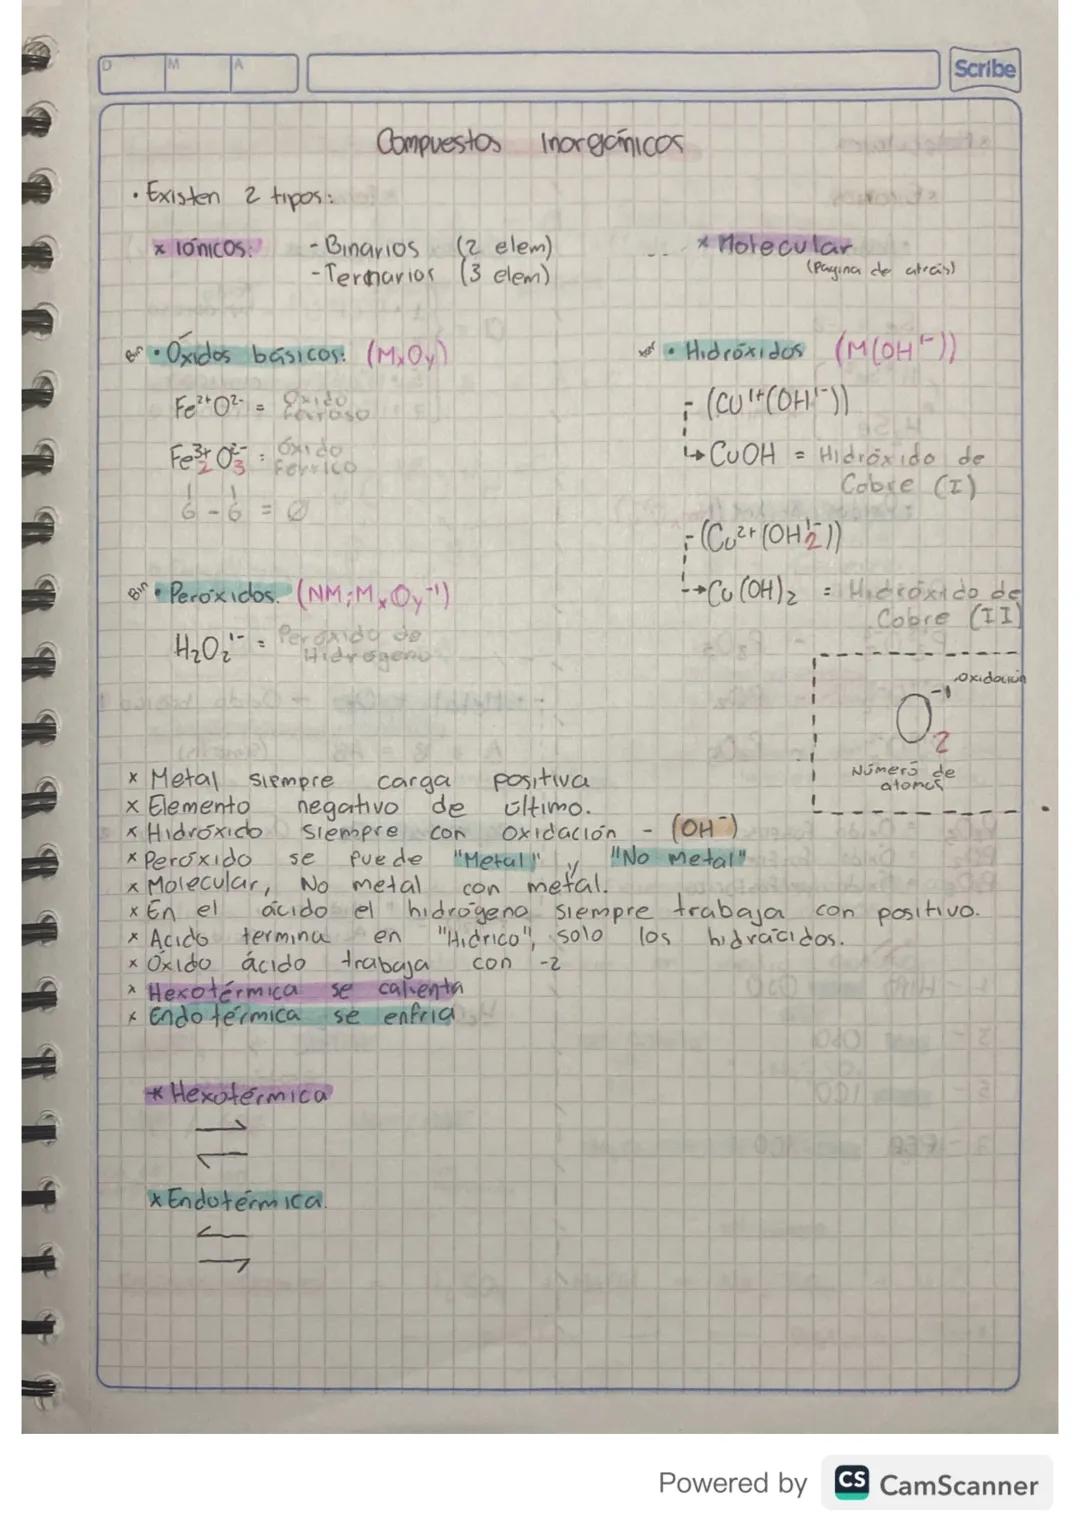 D M A
Scribe
Compuestos Inorgánicos
· Existen 2 tipos:
x Iónicos: - Binarios (2 elem)
- Ternarios (3 elem)
x Molecular
(Pagina de atrás)
Bin · Óxidos básicos: (MxOy)
Fe²⁺O²⁻ = Óxido ferroso
Fe³⁺₂ O²⁻₃ = Óxido Férrico
6 - 6 = Ø
Bin · Peróxidos. (NM;MxOy⁻¹)
H₂O₂¹⁻ = Peróxido de Hidrógeno
· Hidróxidos (M(OH¹⁻))
- (Cu¹⁺(OH¹⁻))
↳ CuOH = Hidróxido de
Cobre (I)
- (Cu²⁺(OH¹⁻₂))
→ Cu(OH)₂ = Hidróxido de
Cobre (II)
oxidación
O₂⁻¹
Número de
atomos
x Metal siempre carga positiva
x Elemento negativo de último.
x Hidróxido siempre con oxidación - (OH⁻)
x Peróxido se puede "Metal" y "No metal"
x Molecular, No metal con metal.
x En el ácido el hidrógeno siempre trabaja con positivo.
x Acido termina en "Hidrico", solo los hidrácidos.
x Óxido ácido trabaja con -2
x Hexotérmica se calienta
x Endotérmica se enfria
* Hexotérmica
x Endotérmica.
Powered by CS CamScanner